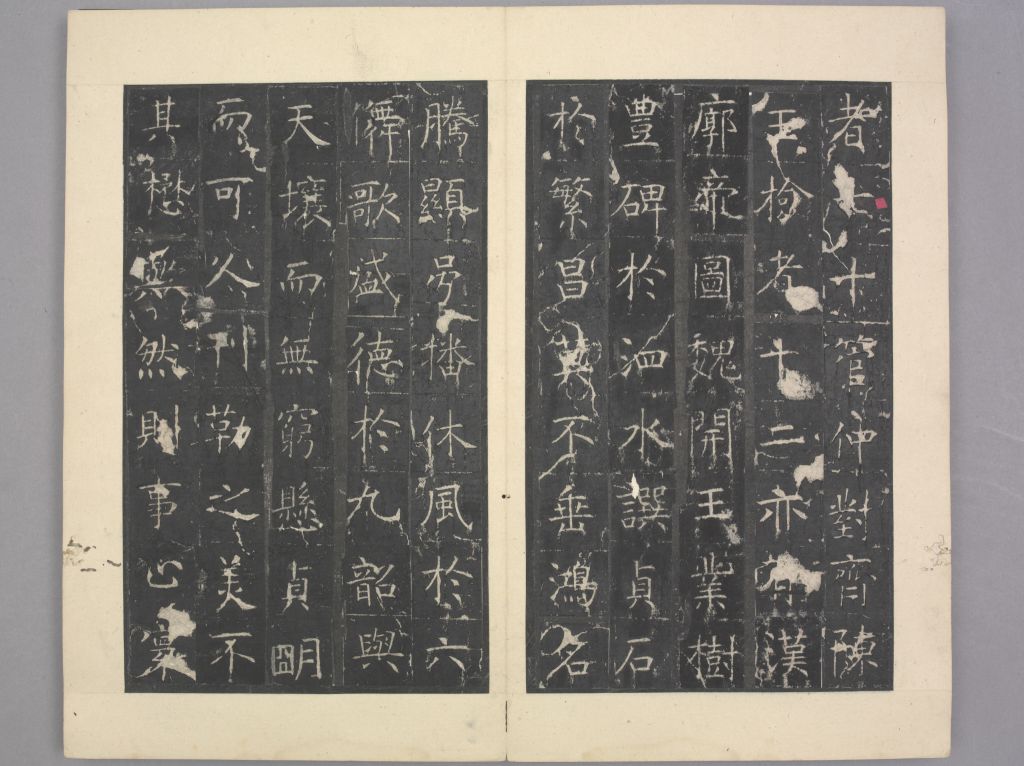 者七十管仲對齊陳
玉檢者十二亦漢
廓帝圖魏開王業樹
豐碑於水譔貞石
於繁昌莫不垂鴻名
騰顯号播休風於六
舞歌盛德於九韶與
天壤而無窮懸貞明
而可久刊勒之美不
其懋與然則事止寰